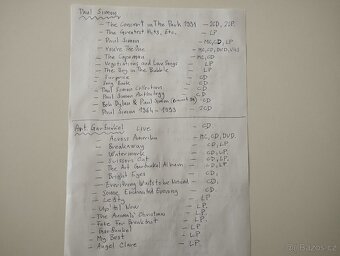 Paul Simon
- The Concert in The Park 1991 - 2CD, 2LP.
- The Greatest Hits, Etc. - LP
- Paul Simon - MC, CD, LP
- You're The One - MC, CD, DVD, VHS
- The Capeman - MC, CD
- Negotiations and Love Songs - LP
- The Boy in The Bubble - LP
- Surprise - CD
- Song Book - CD
- Paul Simon Collection - CD
- Paul Simon Anthology - CD
- Bob Dylan & Paul Simon - CD
- Paul Simon 1964 - 1993 - 3CD
Art Garfunkel LIVE - CD.
- Across America - MC, CD, DVD.
- Breakaway - CD, LP
- Watermark - CD, LP.
- Scissors Cut - CD, LP.
- The Art Garfunkel Album - CD, LP.
- Bright Eyes - CD,
- Everything Wants to be Noticed - CD,
- Some Enchanted Evening - CD.
- Lefty - LP.
- Up 'til Now - LP.
- The Animals' Christmas - LP.
- Fate For Breakfast - LP.
- Garfunkel - LP.
- My Best - LP.
- Angel Clare - LP.
Bazoš.cz